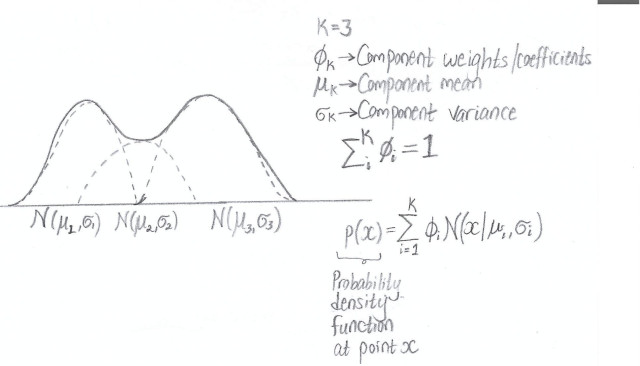 K=3
ϕₖ→Component weights/coefficients
μₖ→Component mean
σₖ→Component variance
∑ᵢᴷ ϕᵢ=1
N(μ₁,σ₁) N(μ₂,σ₂) N(μ₃,σ₃)
p(x)=∑ᵢ₌₁ᴷ ϕᵢ N(x|μᵢ,σᵢ)
Probability
density
function
at point x